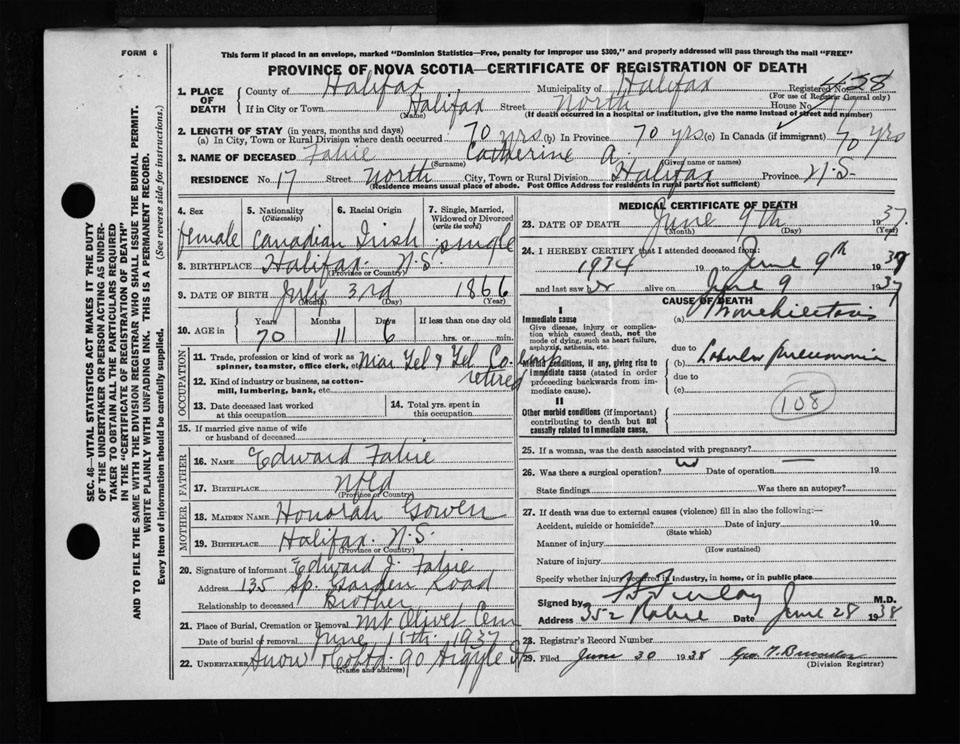 FORM 6
This form if placed in an envelope, marked "Dominion Statistics—Free, penalty for improper use $300," and properly addressed will pass through the mail "FREE"
PROVINCE OF NOVA SCOTIA—CERTIFICATE OF REGISTRATION OF DEATH
1. PLACE OF DEATH County of Halifax Municipality of Halifax Registered No. 438
(For use of Registrar General only)
If in City or Town Halifax Street North House No.
(Name) (If death occurred in a hospital or institution, give the name instead of street and number)
2. LENGTH OF STAY (in years, months and days)
(a) In City, Town or Rural Division where death occurred 70 yrs (b) In Province 70 yrs (c) In Canada (if immigrant) 70 yrs
3. NAME OF DECEASED Fahie Catherine A.
(Surname) (Given name or names)
RESIDENCE No. 17 Street North City, Town or Rural Division Halifax Province N.S.
(Residence means usual place of abode. Post Office Address for residents in rural parts not sufficient)
4. Sex 5. Nationality (Citizenship) 6. Racial Origin 7. Single, Married, Widowed or Divorced (write the word)
female Canadian Irish single
8. BIRTHPLACE Halifax N.S.
(Province or Country)
9. DATE OF BIRTH July 3rd 1866
(Month) (Day) (Year)
10. AGE in Years Months Days If less than one day old
70 11 6 hrs. or min.
OCCUPATION
11. Trade, profession or kind of work as spinner, teamster, office clerk, etc. Mar Tel & Tel Co.
12. Kind of industry or business, as cotton-mill, lumbering, bank, etc. retired
13. Date deceased last worked at this occupation
14. Total yrs. spent in this occupation
15. If married give name of wife or husband of deceased
FATHER
16. NAME Edward Fahie
17. BIRTHPLACE Nfld
(Province or Country)
MOTHER
18. MAIDEN NAME Honorah Gowen
19. BIRTHPLACE Halifax N.S.
(Province or Country)
20. Signature of informant Edward J. Fahie
Address 135 Sp. Garden Road
Relationship to deceased Brother
21. Place of Burial, Cremation or Removal Mt Olivet Cem
Date of burial or removal June 11th 1937
22. UNDERTAKER Snow & Co Ltd. 90 Argyle St
(Name and address)
MEDICAL CERTIFICATE OF DEATH
23. DATE OF DEATH June 9th 1937
(Month) (Day) (Year)
24. I HEREBY CERTIFY that I attended deceased from:
1934 19 to June 9th 1937
and last saw alive on June 9 1937
CAUSE OF DEATH
I
Immediate cause (a) Bronchiectasis
Give disease, injury or complication which caused death, not the mode of dying, such as heart failure, asphyxia, asthenia, etc.
due to
Morbid conditions, if any, giving rise to immediate cause (stated in order proceeding backwards from immediate cause). (b) Lobular Pneumonia
due to
(c)
108
II
Other morbid conditions (if important) contributing to death but not causally related to immediate cause.
25. If a woman, was the death associated with pregnancy?
26. Was there a surgical operation? no Date of operation — 19
State findings Was there an autopsy?
27. If death was due to external causes (violence) fill in also the following:—
Accident, suicide or homicide? Date of injury 19
(State which)
Manner of injury
(How sustained)
Nature of injury
Specify whether injury occurred in industry, in home, or in public place
Signed by Finlay M.D.
Address 352 Robie Date June 28 1938
28. Registrar's Record Number
29. Filed June 30 1938 Geo.
(Division Registrar)
SEC. 46—VITAL STATISTICS ACT MAKES IT THE DUTY
OF THE UNDERTAKER OR PERSON ACTING AS UNDER-
TAKER TO OBTAIN ALL THE PARTICULARS REQUIRED
IN THE "CERTIFICATE OF REGISTRATION OF DEATH"
AND TO FILE THE SAME WITH THE DIVISION REGISTRAR WHO SHALL ISSUE THE BURIAL PERMIT.
WRITE PLAINLY WITH UNFADING INK. THIS IS A PERMANENT RECORD.
Every item of information should be carefully supplied. (See reverse side for instructions.)